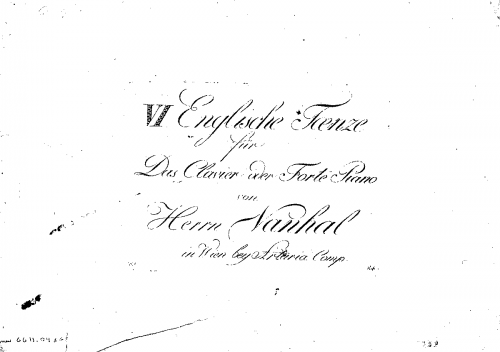 VI Englische Tænze
für
Das Clavier oder Forte Piano
von
Herrn Vanhal
in Wien bey Artaria Comp.